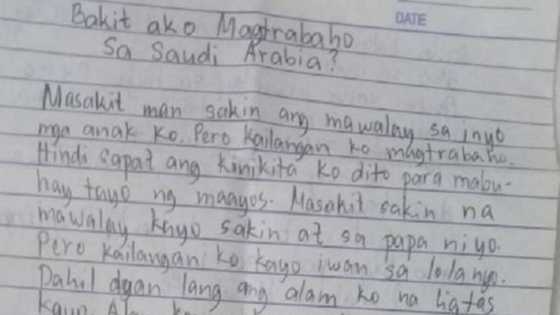 DATE
Bakit ako Magtrabaho
Sa Saudi Arabia?
Masakit man sakin ang mawalay sa inyo
mga anak ko. Pero kailangan ko magtrabaho.
Hindi sapat ang kinikita ko dito para mabu-
hay tayo ng maayos. Masakit sakin na
mawalay kayo sakin at sa papa niyo.
Pero kailangan ko kayo iwan sa lola nyo.
Dahil dyan lang ang alam ko na ligtas
kayo. Alam